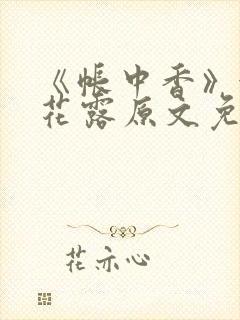 《帐中香》
花露原文免
花亦心